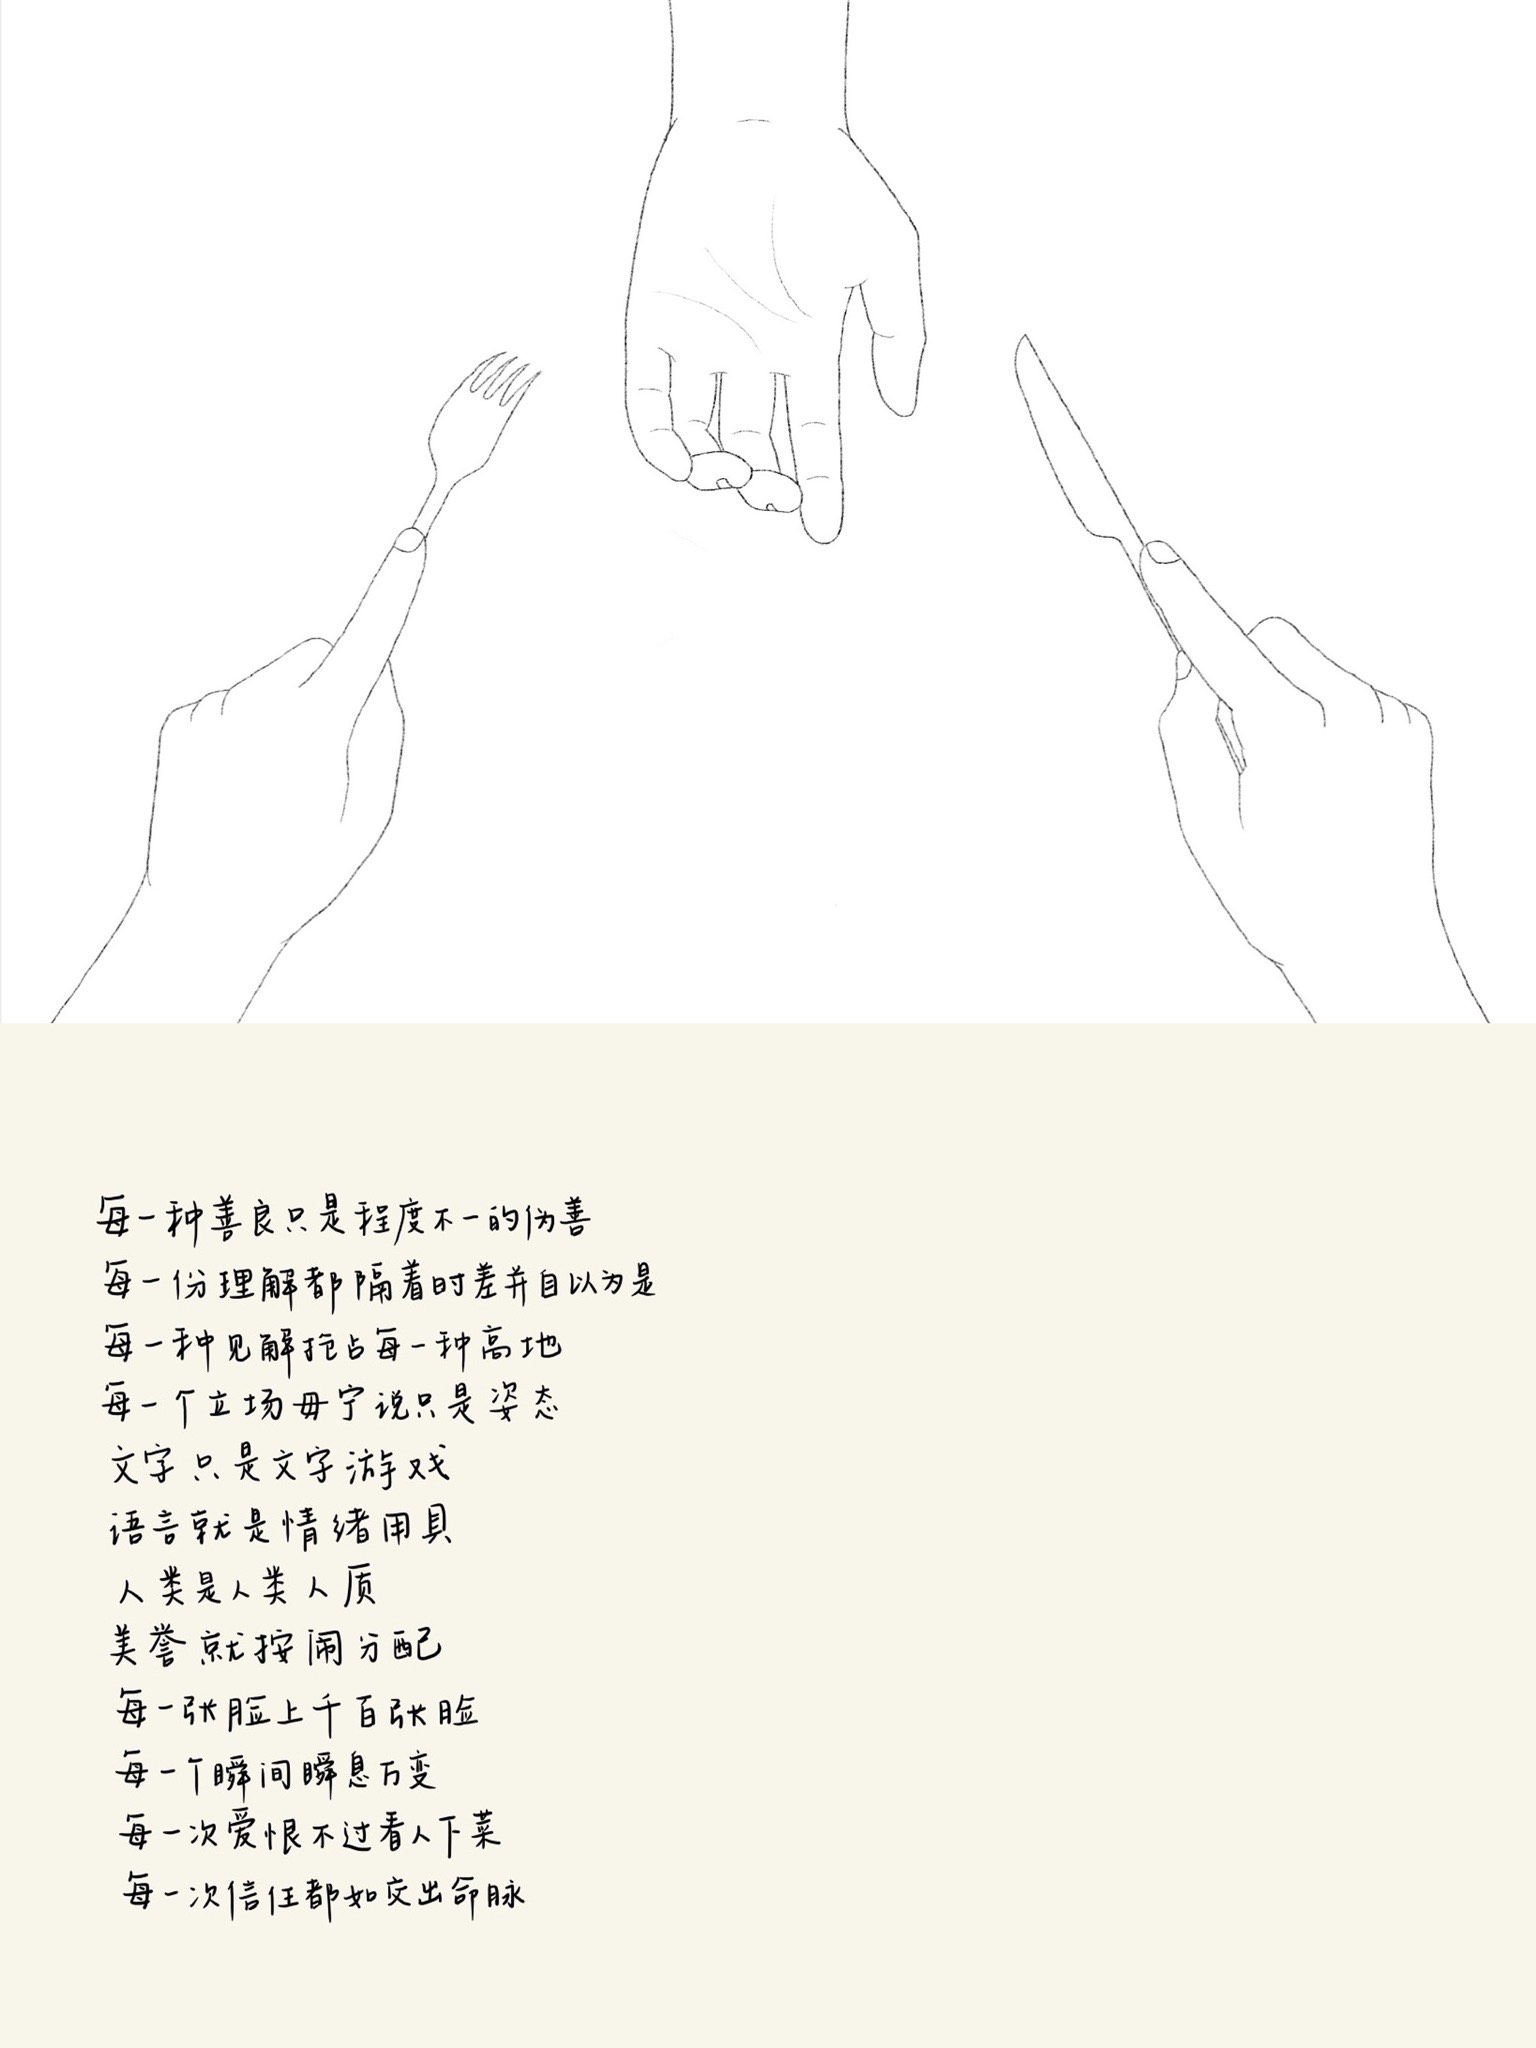 每一种善良只是程度不一的伪善
每一份理解都隔着时差并自以为是
每一种见解抢占每一种高地
每一个立场毋宁说只是姿态
文字只是文字游戏
语言就是情绪用具
人类是人类人质
美誉就按闹分配
每一张脸上千百张脸
每一个瞬间瞬息万变
每一次爱恨不过看人下菜
每一次信任都如交出命脉